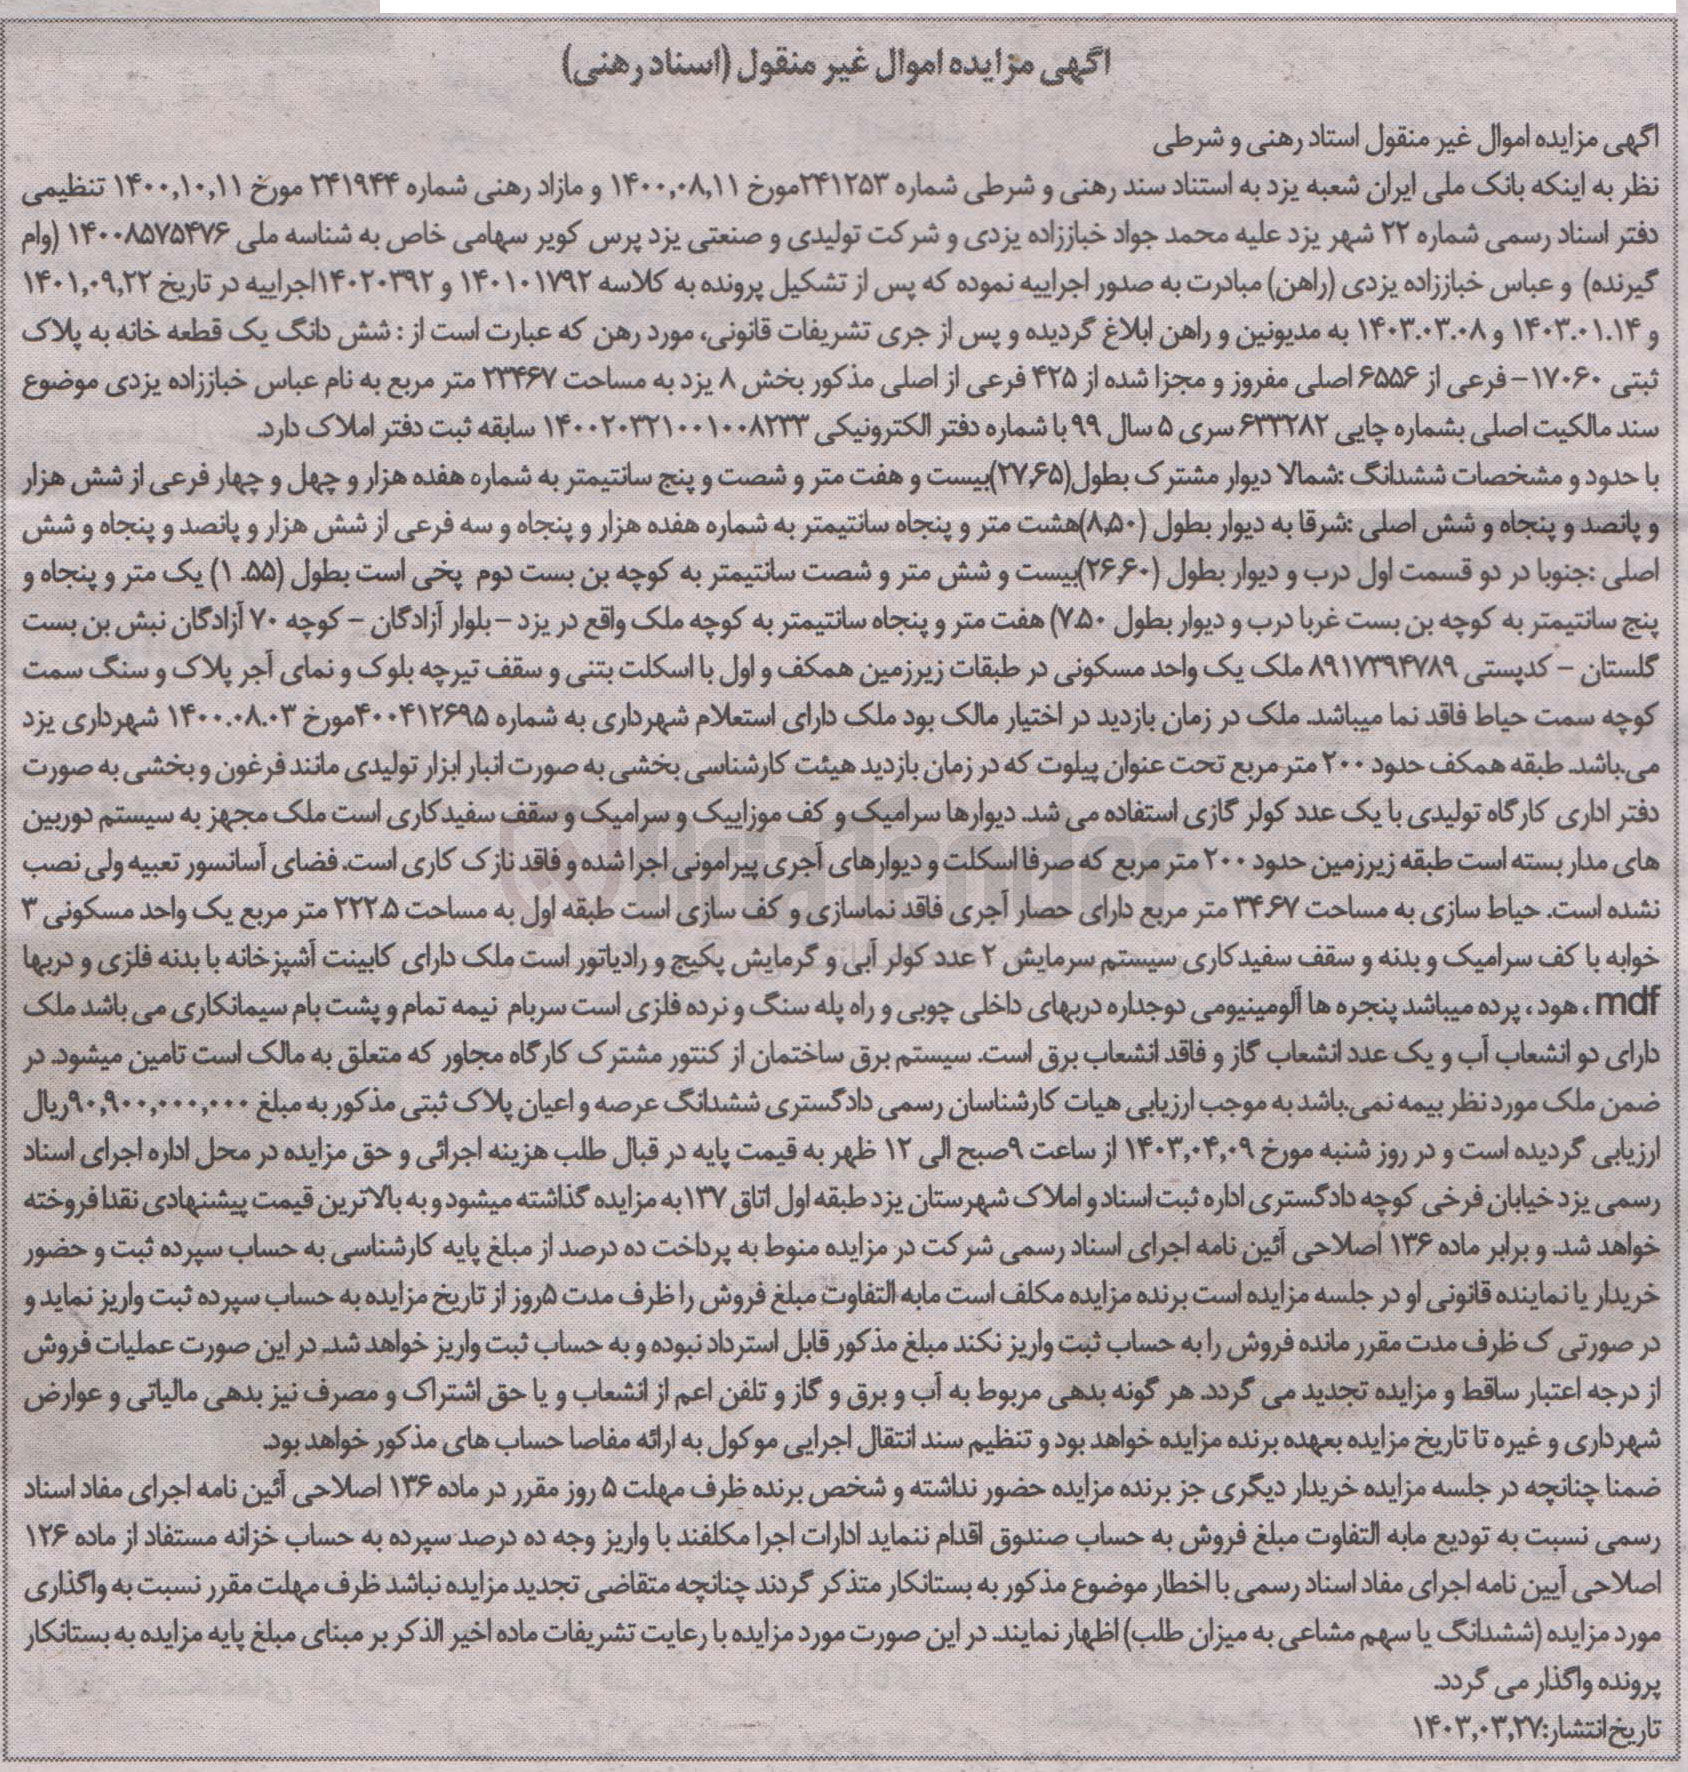 آگهی مزایده اموال غیر منقول (اسناد رهنی)
اگهی مزایده اموال غیر منقول استاد رهنی و شرطی
نظر به اینکه بانک ملی ایران شعبه یزد به استناد سند رهنی و شرطی شماره ۲۴۱۲۵۳مورخ ۱۴۰۰,۰۸,۱۱ و مازاد رهنی شماره ۲۴۱۹۴۴ مورخ ۱۴۰۰,۱۰,۱۱ تنظیمی
دفتر اسناد رسمی شماره ۲۲ شهر یزد علیه محمد جواد خباززاده یزدی و شرکت تولیدی و صنعتی یزد پرس کویر سهامی خاص به شناسه ملی ۱۴۰۰۸۵۷۵۴۷۶ (وام
گیرنده) و عباس خباززاده یزدی (راهن) مبادرت به صدور اجراییه نموده که پس از تشکیل پرونده به کلاسه ۱۴۰۱۰۱۷۹۲ و ۱۴۰۲۰۳۹۲اجراییه در تاریخ ۱۴۰۱,۰۹,۲۲
و ۱۴۰۳.۰۱.۱۴ و ۱۴۰۳.۰۳.۰۸ به مدیونین و راهن ابلاغ گردیده و پس از جری تشریفات قانونی، مورد رهن که عبارت است از : شش دانگ یک قطعه خانه به پلاک
ثبتی ۱۷۰۶۰- فرعی از ۶۵۵۶ اصلی مفروز و مجزا شده از ۴۲۵ فرعی از اصلی مذکور بخش ۸ یزد به مساحت ۲۳۴۶۷ متر مربع به نام عباس خباززاده یزدی موضوع
سند مالکیت اصلی بشماره چاپی ۶۳۳۲۸۲ سری ۵ سال ۹۹ با شماره دفتر الکترونیکی ۱۴۰۰۲۰۳۲۱۰۰۱۰۰۸۲۳۳ سابقه ثبت دفتر املاک دارد.
با حدود و مشخصات ششدانگ :شمالا دیوار مشترک بطول(۲۷,۶۵)بیست و هفت متر و شصت و پنج سانتیمتر به شماره هفده هزار و چهل و چهار فرعی از شش هزار
و پانصد و پنجاه و شش اصلی :شرقا به دیوار بطول (۸,۵۰)هشت متر و پنجاه سانتیمتر به شماره هفده هزار و پنجاه و سه فرعی از شش هزار و پانصد و پنجاه و شش
اصلی :جنوبا در دو قسمت اول درب و دیوار بطول (۲۶,۶۰)بیست و شش متر و شصت سانتیمتر به کوچه بن بست دوم پخی است بطول (۱.۵۵) یک متر و پنجاه و
پنج سانتیمتر به کوچه بن بست غربا درب و دیوار بطول ۷.۵۰) هفت متر و پنجاه سانتیمتر به کوچه ملک واقع در یزد - بلوار آزادگان - کوچه ۷۰ آزادگان نبش بن بست
گلستان - کدپستی ۸۹۱۷۳۹۴۷۸۹ ملک یک واحد مسکونی در طبقات زیرزمین همکف و اول با اسکلت بتنی و سقف تیرچه بلوک و نمای آجر پلاک و سنگ سمت
کوچه سمت حیاط فاقد نما میباشد. ملک در زمان بازدید در اختیار مالک بود ملک دارای استعلام شهرداری به شماره ۴۰۰۴۱۲۶۹۵مورخ ۱۴۰۰.۰۸.۰۳ شهرداری یزد
می.باشد. طبقه همکف حدود ۲۰۰ متر مربع تحت عنوان پیلوت که در زمان بازدید هیئت کارشناسی بخشی به صورت انبار ابزار تولیدی مانند فرغون و بخشی به صورت
دفتر اداری کارگاه تولیدی با یک عدد کولر گازی استفاده می شد. دیوارها سرامیک و کف موزاییک و سرامیک و سقف سفیدکاری است ملک مجهز به سیستم دوربین
های مدار بسته است طبقه زیرزمین حدود ۲۰۰ متر مربع که صرفا اسکلت و دیوارهای آجری پیرامونی اجرا شده و فاقد نازک کاری است. فضای آسانسور تعبیه ولی نصب
نشده است. حیاط سازی به مساحت ۳۴.۶۷ متر مربع دارای حصار آجری فاقد نماسازی و کف سازی است طبقه اول به مساحت ۲۲۲.۵ متر مربع یک واحد مسکونی ۳
خوابه با کف سرامیک و بدنه و سقف سفیدکاری سیستم سرمایش ۲ عدد کولر آبی و گرمایش پکیج و رادیاتور است ملک دارای کابینت آشپزخانه با بدنه فلزی و دربها
mdf ، هود ، پرده میباشد پنجره ها آلومینیومی دوجداره دربهای داخلی چوبی و راه پله سنگ و نرده فلزی است سربام نیمه تمام و پشت بام سیمانکاری می باشد ملک
دارای دو انشعاب آب و یک عدد انشعاب گاز و فاقد انشعاب برق است. سیستم برق ساختمان از کنتور مشترک کارگاه مجاور که متعلق به مالک است تامین میشود. در
ضمن ملک مورد نظر بیمه نمی.باشد به موجب ارزیابی هیات کارشناسان رسمی دادگستری ششدانگ عرصه و اعیان پلاک ثبتی مذکور به مبلغ ۹۰,۹۰۰,۰۰۰,۰۰۰ریال
ارزیابی گردیده است و در روز شنبه مورخ ۱۴۰۳,۰۴,۰۹ از ساعت ۹صبح الی ۱۲ ظهر به قیمت پایه در قبال طلب هزینه اجرائی و حق مزایده در محل اداره اجرای اسناد
رسمی یزد خیابان فرخی کوچه دادگستری اداره ثبت اسناد و املاک شهرستان یزد طبقه اول اتاق ۱۳۷به مزایده گذاشته میشود و به بالاترین قیمت پیشنهادی نقدا فروخته
خواهد شد. و برابر ماده ۱۳۶ اصلاحی آئین نامه اجرای اسناد رسمی شرکت در مزایده منوط به پرداخت ده درصد از مبلغ پایه کارشناسی به حساب سپرده ثبت و حضور
خریدار یا نماینده قانونی او در جلسه مزایده است برنده مزایده مکلف است مابه التفاوت مبلغ فروش را ظرف مدت ۵روز از تاریخ مزایده به حساب سپرده ثبت واریز نماید و
در صورتی ک ظرف مدت مقرر مانده فروش را به حساب ثبت واریز نکند مبلغ مذکور قابل استرداد نبوده و به حساب ثبت واریز خواهد شد. در این صورت عملیات فروش
از درجه اعتبار ساقط و مزایده تجدید می گردد. هر گونه بدهی مربوط به آب و برق و گاز و تلفن اعم از انشعاب و یا حق اشتراک و مصرف نیز بدهی مالیاتی و عوارض
شهرداری و غیره تا تاریخ مزایده بعهده برنده مزایده خواهد بود و تنظیم سند انتقال اجرایی موکول به ارائه مفاصا حساب های مذکور خواهد بود.
ضمنا چنانچه در جلسه مزایده خریدار دیگری جز برنده مزایده حضور نداشته و شخص برنده ظرف مهلت ۵ روز مقرر در ماده ۱۳۶ اصلاحی آئین نامه اجرای مفاد اسناد
رسمی نسبت به تودیع مابه التفاوت مبلغ فروش به حساب صندوق اقدام ننماید ادارات اجرا مکلفند با واریز وجه ده درصد سپرده به حساب خزانه مستفاد از ماده ۱۲۶
اصلاحی آیین نامه اجرای مفاد اسناد رسمی با اخطار موضوع مذکور به بستانکار متذکر گردند چنانچه متقاضی تجدید مزایده نباشد ظرف مهلت مقرر نسبت به واگذاری
مورد مزایده (ششدانگ یا سهم مشاعی به میزان طلب) اظهار نمایند. در این صورت مورد مزایده با رعایت تشریفات ماده اخیر الذکر بر مبنای مبلغ پایه مزایده به بستانکار
پرونده واگذار می گردد.
تاریخ انتشار:۱۴۰۳,۰۳,۲۷